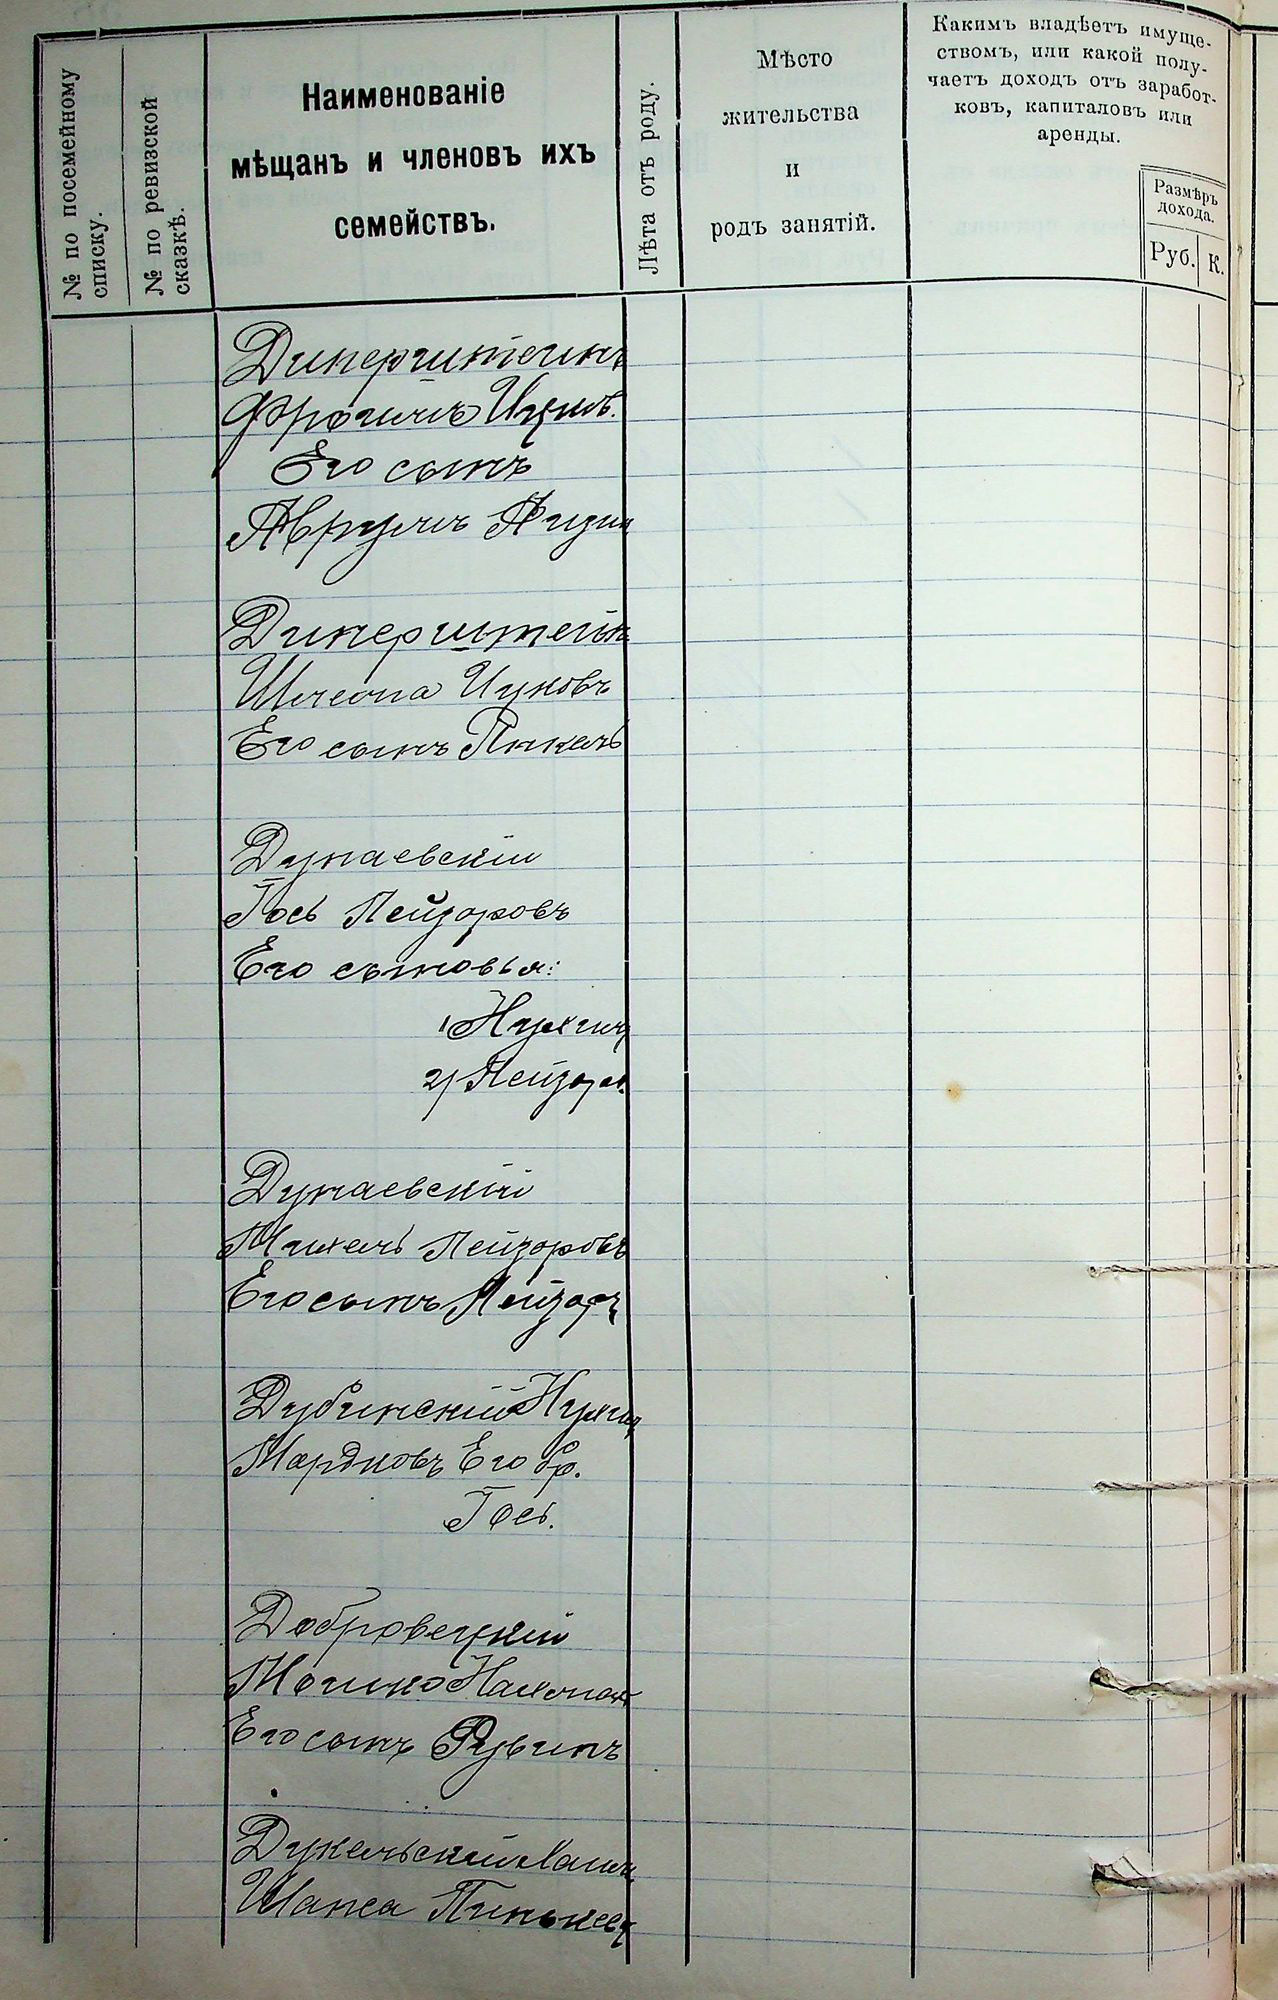 № по посемейному
списку.
№ по ревизской
сказкѣ.
Наименованіе
мѣщанъ и членовъ ихъ
семействъ.
Лѣта отъ роду.
Мѣсто
жительства
и
родъ занятій.
Какимъ владѣетъ имуще-
ствомъ, или какой полу-
чаетъ доходъ отъ заработ-
ковъ, капиталовъ или
аренды.
Размѣръ
дохода.
Руб. К.
Динерштейнъ
Фроимъ Ицков.
Его сынъ
Аврумъ Айзикъ
Динерштейнъ
Шлема Ицковъ
Его сынъ
Дунаевскій
Іось Лейзоровъ
Его сыновья:
1) Нухимъ
2) Лейзоръ
Дунаевскій
Михель Лейзоровъ
Его сынъ Лейзоръ
Дубинскій Нухимъ
Мордковъ Его бр.
Іось.
Добровецкій
Мошко
Его сынъ Рувинъ
Дукельскій Хаимъ
Шапса Пиньковъ